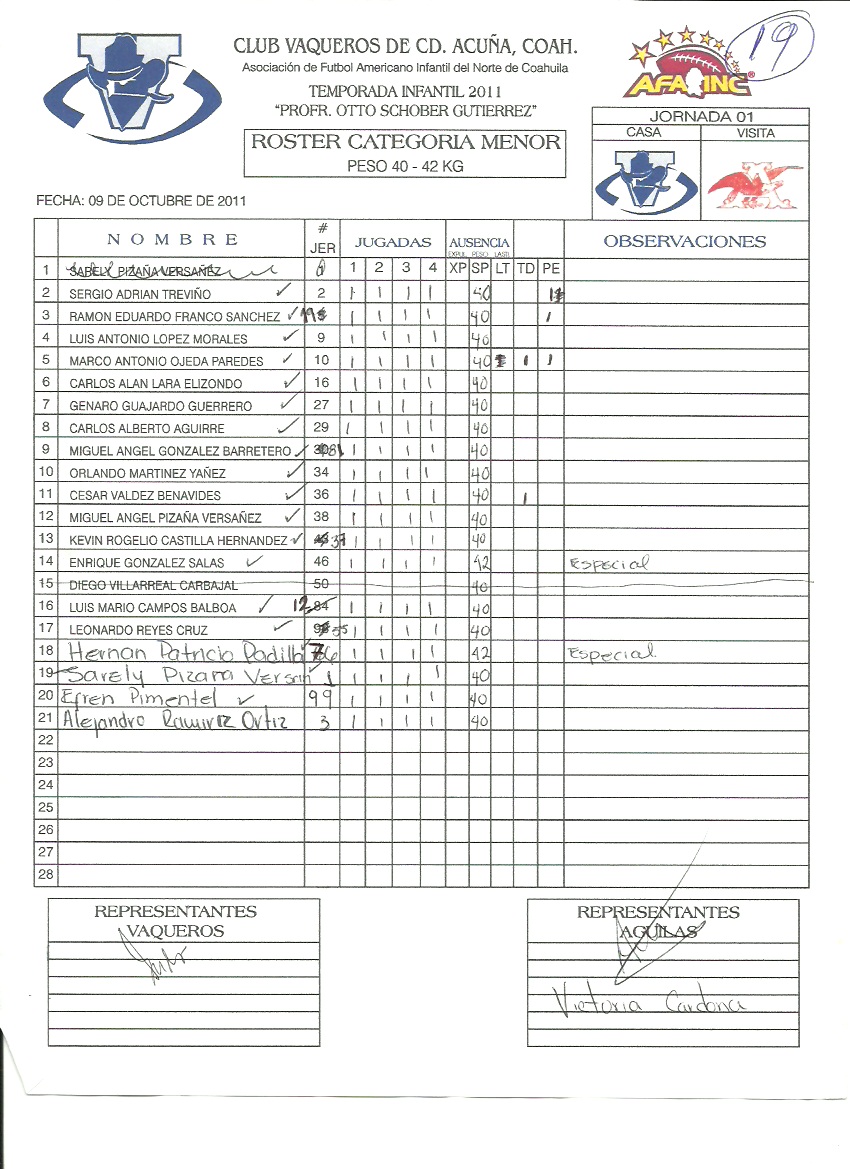 CLUB VAQUEROS DE CD. ACUÑA, COAH.
Asociación de Futbol Americano Infantil del Norte de Coahuila
TEMPORADA INFANTIL 2011
"PROFR. OTTO SCHOBER GUTIERREZ"
ROSTER CATEGORIA MENOR
PESO 40 - 42 KG
AFAINC®
19
JORNADA 01
CASA VISITA
FECHA: 09 DE OCTUBRE DE 2011
NOMBRE # JER JUGADAS AUSENCIA OBSERVACIONES
EXPUL PESO LAST
1 2 3 4 XP SP LT TD PE
1 SARELY PIZAÑA VERSAÑEZ
2 SERGIO ADRIAN TREVIÑO ✓ 2 1 1 1 1 40
3 RAMON EDUARDO FRANCO SANCHEZ ✓ 19 1 1 1 1 40 1
4 LUIS ANTONIO LOPEZ MORALES ✓ 9 1 1 1 1 40
5 MARCO ANTONIO OJEDA PAREDES ✓ 10 1 1 1 1 40 1 1
6 CARLOS ALAN LARA ELIZONDO ✓ 16 1 1 1 1 40
7 GENARO GUAJARDO GUERRERO ✓ 27 1 1 1 1 40
8 CARLOS ALBERTO AGUIRRE ✓ 29 1 1 1 1 40
9 MIGUEL ANGEL GONZALEZ BARRETERO ✓ 81 1 1 1 1 40
10 ORLANDO MARTINEZ YAÑEZ ✓ 34 1 1 1 1 40
11 CESAR VALDEZ BENAVIDES ✓ 36 1 1 1 1 40 1
12 MIGUEL ANGEL PIZAÑA VERSAÑEZ ✓ 38 1 1 1 1 40
13 KEVIN ROGELIO CASTILLA HERNANDEZ ✓ 37 1 1 1 1 40
14 ENRIQUE GONZALEZ SALAS ✓ 46 1 1 1 1 42 Especial
15 DIEGO VILLARREAL CARBAJAL 50 40
16 LUIS MARIO CAMPOS BALBOA ✓ 12 84 1 1 1 1 40
17 LEONARDO REYES CRUZ ✓ 55 1 1 1 1 40
18 Hernan Patricio Padilla 76 1 1 1 1 42 Especial
19 Sarely Pizara Versan 1 1 1 1 1 40
20 Efren Pimentel ✓ 99 1 1 1 1 40
21 Alejandro Ramirez Ortiz 3 1 1 1 1 40
22
23
24
25
26
27
28
REPRESENTANTES VAQUEROS
REPRESENTANTES AGUILAS
Victoria Cardona